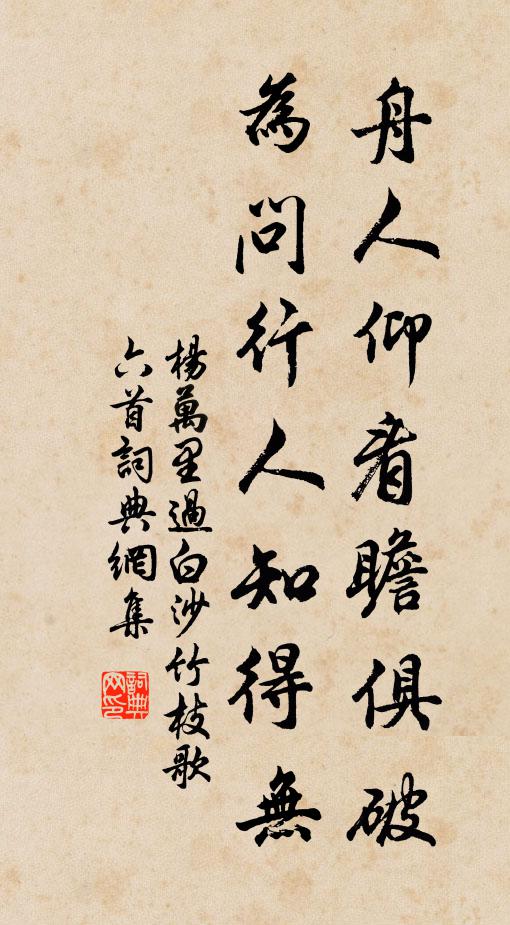 舟人仰看膽俱破
為問行人知得無
楊萬里過白沙竹枝歌
六首詞典網集
詞典網印